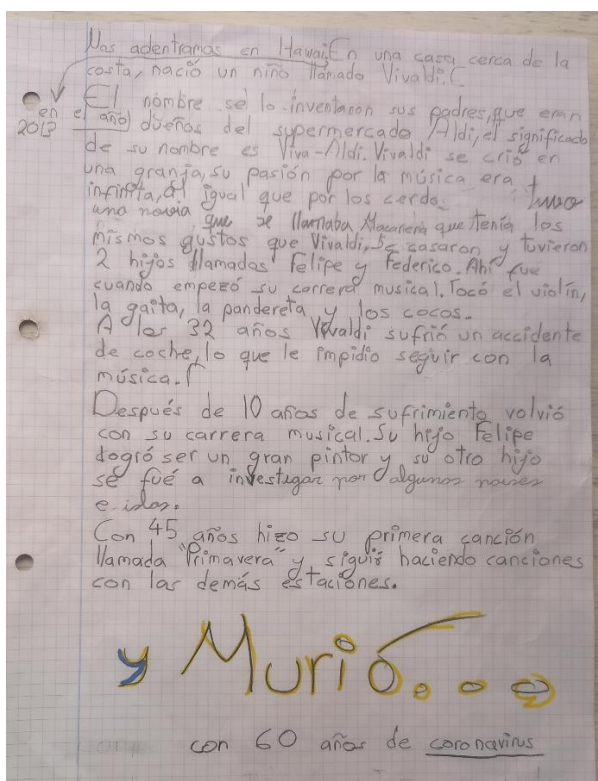 Nos adentramos en Hawai. En una casa cerca de la
costa, nació un niño llamado Vivaldi.
El nombre se lo inventaron sus padres, que eran
en el año
2013
dueños del supermercado Aldi, el significado
de su nombre es Viva-Aldi. Vivaldi se crió en
una granja, su pasión por la música era
infinita, al igual que por los cerdos. tuvo
una novia que se llamaba Macarena que tenía los
mismos gustos que Vivaldi, Se casaron y tuvieron
2 hijos llamados Felipe y Federico. Ahí fue
cuando empezó su carrera musical. Tocó el violín,
la gaita, la pandereta y los cocos.
A los 32 años Vivaldi sufrió un accidente
de coche, lo que le impidio seguir con la
música.
Después de 10 años de sufrimiento volvió
con su carrera musical. Su hijo Felipe
logró ser un gran pintor y su otro hijo
se fué a investigar por algunos países
e islas.
Con 45 años hizo su primera canción
llamada "Primavera" y siguió haciendo canciones
con las demás estaciones.
y Murió...
con 60 años de coronavirus